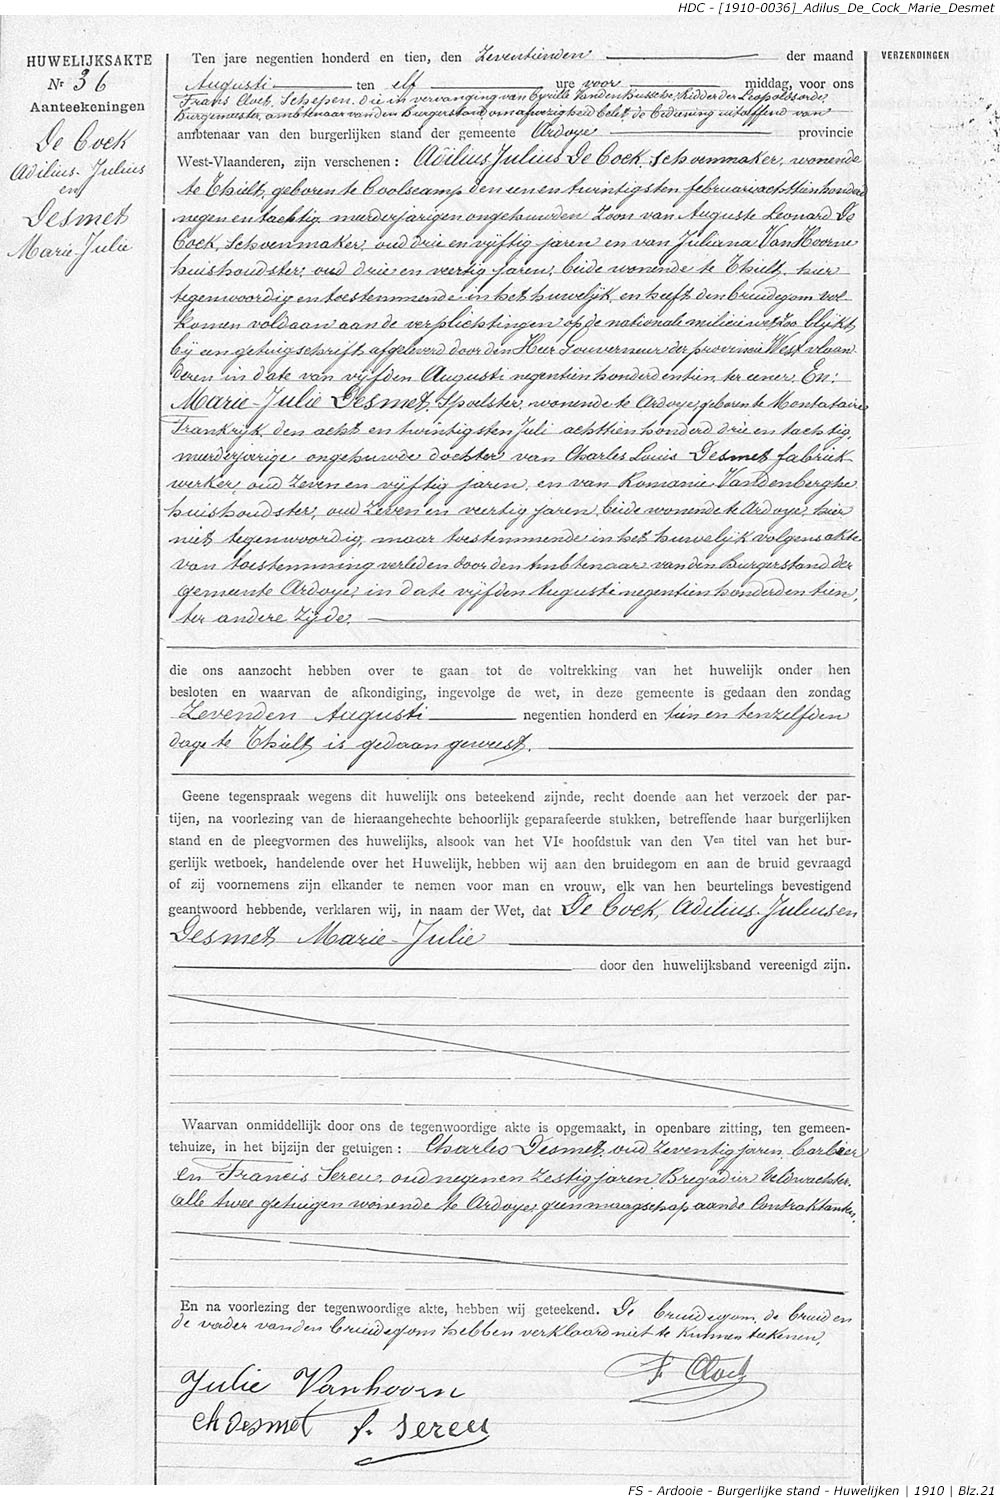 HDC - [1910-0036]_Adilus_De_Cock_Marie_Desmet
HUWELIJKSAKTE
Nr 36
Aanteekeningen
De Cock
Adilius-Julius
en
Desmet
Marie-Julie
VERZENDINGEN
Ten jare negentien honderd en tien, den Zeventienden der maand
Augusti ten elf ure voor middag, voor ons
Frans Cloet, Schepen, die in vervanging van Cyrille Vanden Bussche, Ridder der Leopoldsorde,
Burgemeester, ambtenaar van den Burgerstand, om afwezigheid belet, de bediening uitoeffend van
ambtenaar van den burgerlijken stand der gemeente Ardoye provincie
West-Vlaanderen, zijn verschenen : Adilius Julius De Cock, Schoenmaker, wonende
te Thielt, geboren te Coolscamp den eenen twintigsten februari achttien honderd
negen en tachtig, minderjarigen ongehuwden Zoon van Auguste Leonard De
Cock, Schoenmaker, oud drie en vijftig jaren en van Juliana Van Hoorne
huishoudster, oud drie en veertig jaren, beide wonende te Thielt, hier
tegenwoordig en toestemmende in het huwelijk, en heeft den bruidegom vol
komen voldaan aan de verplichtingen op de nationale milicie wet Zoo blijkt
bij een getuigschrift afgeleverd door den Heer Gouverneur der provincie West vlaan
deren in date van vijfden Augusti negentien honderd en tien, ter eener. En:
Marie-Julie Desmet, Spoelster, wonende te Ardoye, geboren te Montataire
Frankrijk, den acht en twintigsten Juli achttien honderd drie en tachtig,
meerderjarige ongehuwde dochter van Charles Louis Desmet fabriek
werker, oud Zeven en vijftig jaren, en van Romanie Vandenberghe
huishoudster, oud Zeven en veertig jaren, beide wonende te Ardoye, hier
niet tegenwoordig, maar toestemmende in het huwelijk volgens akte
van toestemming verleden door den Ambtenaar van den Burgerstand der
gemeente Ardoye, in date vijfden Augusti negentien honderd en tien,
ter andere Zijde.
die ons aanzocht hebben over te gaan tot de voltrekking van het huwelijk onder hen
besloten en waarvan de afkondiging, ingevolge de wet, in deze gemeente is gedaan den zondag
Zevenden Augusti negentien honderd en tien en tenzelfden
dage te Thielt is gedaan geweest.
Geene tegenspraak wegens dit huwelijk ons beteekend zijnde, recht doende aan het verzoek der par-
tijen, na voorlezing van de hieraangehechte behoorlijk geparafeerde stukken, betreffende haar burgerlijken
stand en de pleegvormen des huwelijks, alsook van het VIe hoofdstuk van den Ven titel van het bur-
gerlijk wetboek, handelende over het Huwelijk, hebben wij aan den bruidegom en aan de bruid gevraagd
of zij voornemens zijn elkander te nemen voor man en vrouw, elk van hen beurtelings bevestigend
geantwoord hebbende, verklaren wij, in naam der Wet, dat De Cock, Adilius-Julius en
Desmet Marie-Julie
door den huwelijksband vereenigd zijn.
Waarvan onmiddellijk door ons de tegenwoordige akte is opgemaakt, in openbare zitting, ten gemeen-
tehuize, in het bijzijn der getuigen : Charles Desmet, oud Zeventig jaren, barbier
en Francis Sereu, oud negen en Zestig jaren, Brigadier Veldwachter,
alle twee getuigen wonende te Ardoye, geen maagschap aan de Contraktanten.
En na voorlezing der tegenwoordige akte, hebben wij geteekend. De bruidegom, de bruid en
de vader van den bruidegom hebben verklaard niet te kunnen teekenen.
F Cloet
Julie Vanhoorn
Ch Desmet f. Sereu
FS - Ardooie - Burgerlijke stand - Huwelijken | 1910 | Blz.21